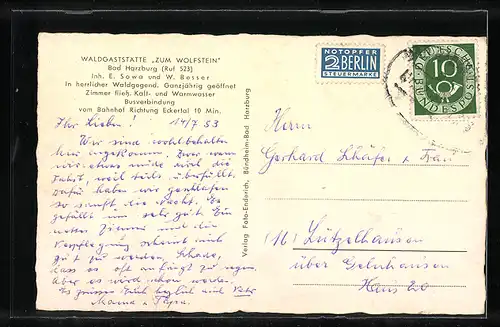 WALDGASTSTÄTTE „ZUM WOLFSTEIN"
Bad Harzburg (Ruf 523)
Inh. E. Sowa und W. Besser
In herrlicher Waldgegend. Ganzjährig geöffnet
Zimmer fließ. Kalt- und Warmwasser
Busverbindung
vom Bahnhof Richtung Eckertal 10 Min.
Ihr Lieben! 14/7 53
Wir sind wohlbehalten
hier angekommen. Zwar waren
wir etwas müde und die
Fahrt, weil teils überfüllt.
Dafür haben wir geschlafen
so sanft die Nacht. Es
gefällt uns sehr gut. Ein
nettes Zimmer und die
Verpflegung scheint auch
gut zu werden. Schade,
dass es oft anfängt zu regnen.
Aber es wird schon werden.
Es grüssen Euch herzlich
Mama + Papa.
Verlag Foto-Enderich, Bündheim-Bad Harzburg
NOTOPFER
2 BERLIN
STEUERMARKE
DEUTSCHE
BUNDESPOST
10
Herrn
Gerhard Schäfer + Frau
(16) Lützelhausen
über Gelnhausen
Haus 20